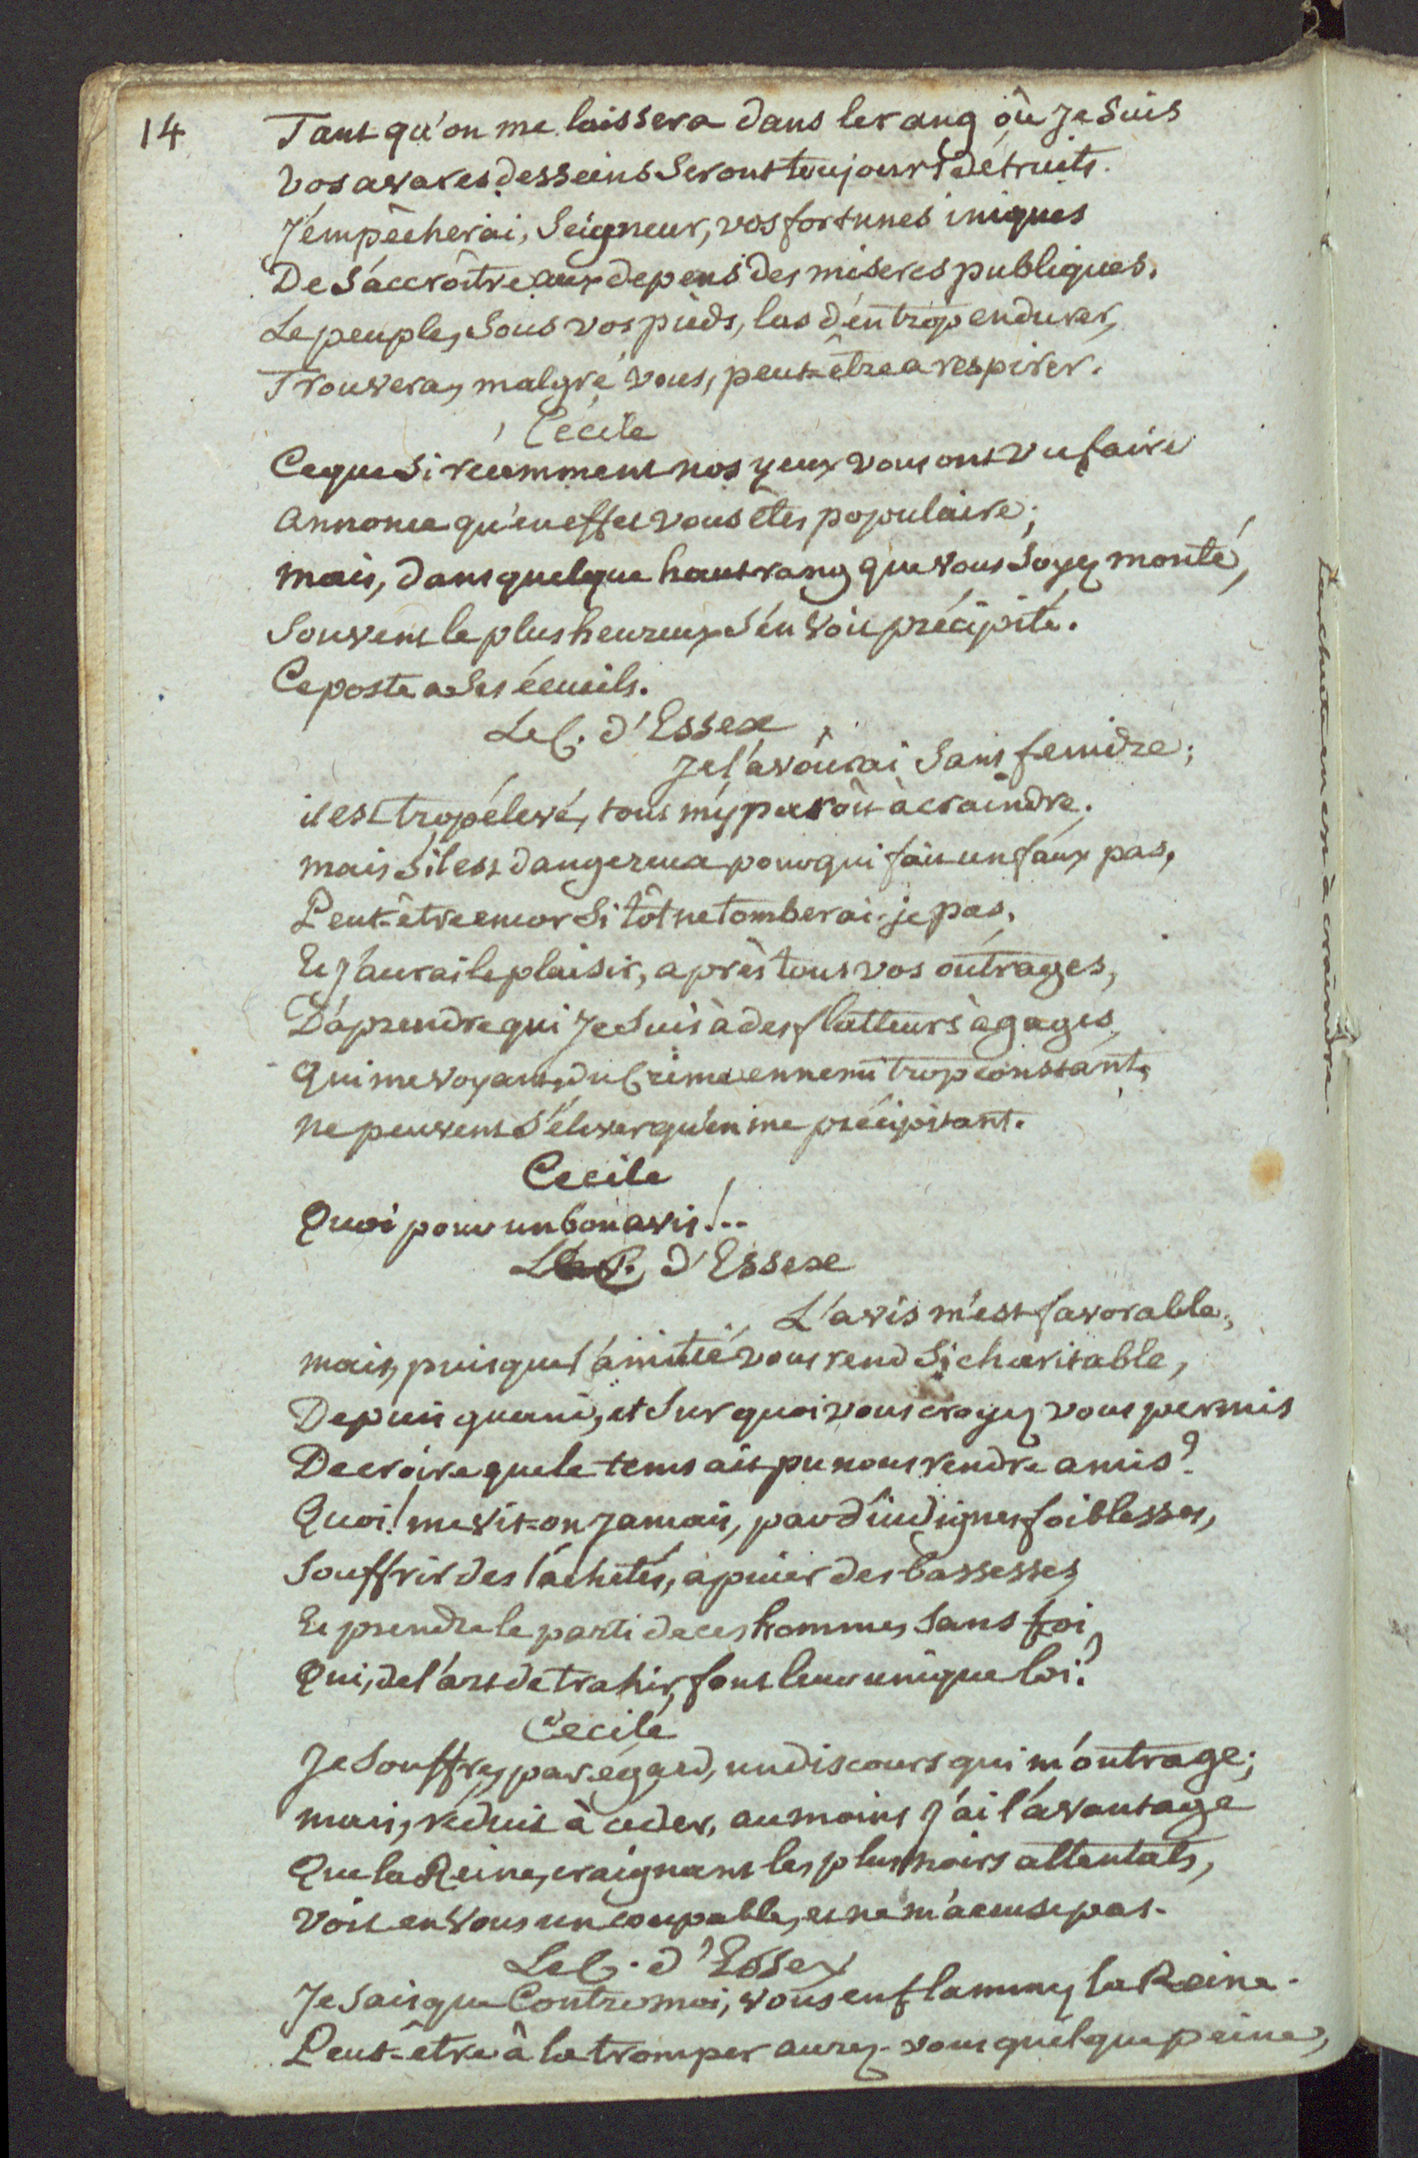 14
Tant qu'on me laissera dans le rang où Je Suis
Vos avares desseins Seront toujours détruits.
J'empêcherai, Seigneur, vos fortunes iniques
De S'accroître aux depens des miseres publiques.
Le peuple, Sous vos pieds, las d'en trop endurer,
Trouvera, malgré vous, peut-être a respirer.
Cécile
Ce que Si récemment nos yeux vous ont Vu faire
Annonce qu'en effet vous êtes populaire;
mais, dans quelque haut rang que vous Soyez monté,
Souvent le plus heureux S'en voit précipité.
Ce poste a Ses écueils.
Le C. d'Essex
Je l'avoûrai Sans feindre;
il est trop élevé, tout m'y paroît à craindre.
La chute en est à craindre.
mais S'il est dangereux pour qui fait un faux pas,
Peut-être encor Si tôt ne tomberai-je pas,
Et J'aurai le plaisir, après tous vos outrages,
D'aprendre qui Je Suis à des flatteurs à gages,
Qui me voyant, du Crime ennemi trop constant,
ne peuvent S'élever qu'en me précipitant.
Cecile
Quoi pour un bon avis!..
Le C. d'Essex
L'avis m'est favorable;
mais, puisque l'amitié vous rend Si charitable,
Depuis quand, et Sur quoi vous croyez vous permis
De croire que le tems ait pu nous rendre amis?
Quoi! me vit-on Jamais, par d'indignes foiblesses,
Souffrir des lâchetés, apuier des bassesses,
Et prendre le parti de ces hommes Sans foi
Qui, de l'art de trahir, font leur unique loi?
Cecile
Je Souffre, par égard, un discours qui m'outrage;
mais, réduit à ceder, au moins J'ai l'avantage
Que la Reine, craignant les plus noirs attentats,
Voit en Vous un coupable, et ne m'accuse pas.
Le C. d'Essex
Je Sais que Contre moi, vous enflammez la Reine.
Peut-être à la tromper aurez-vous quelque peine,